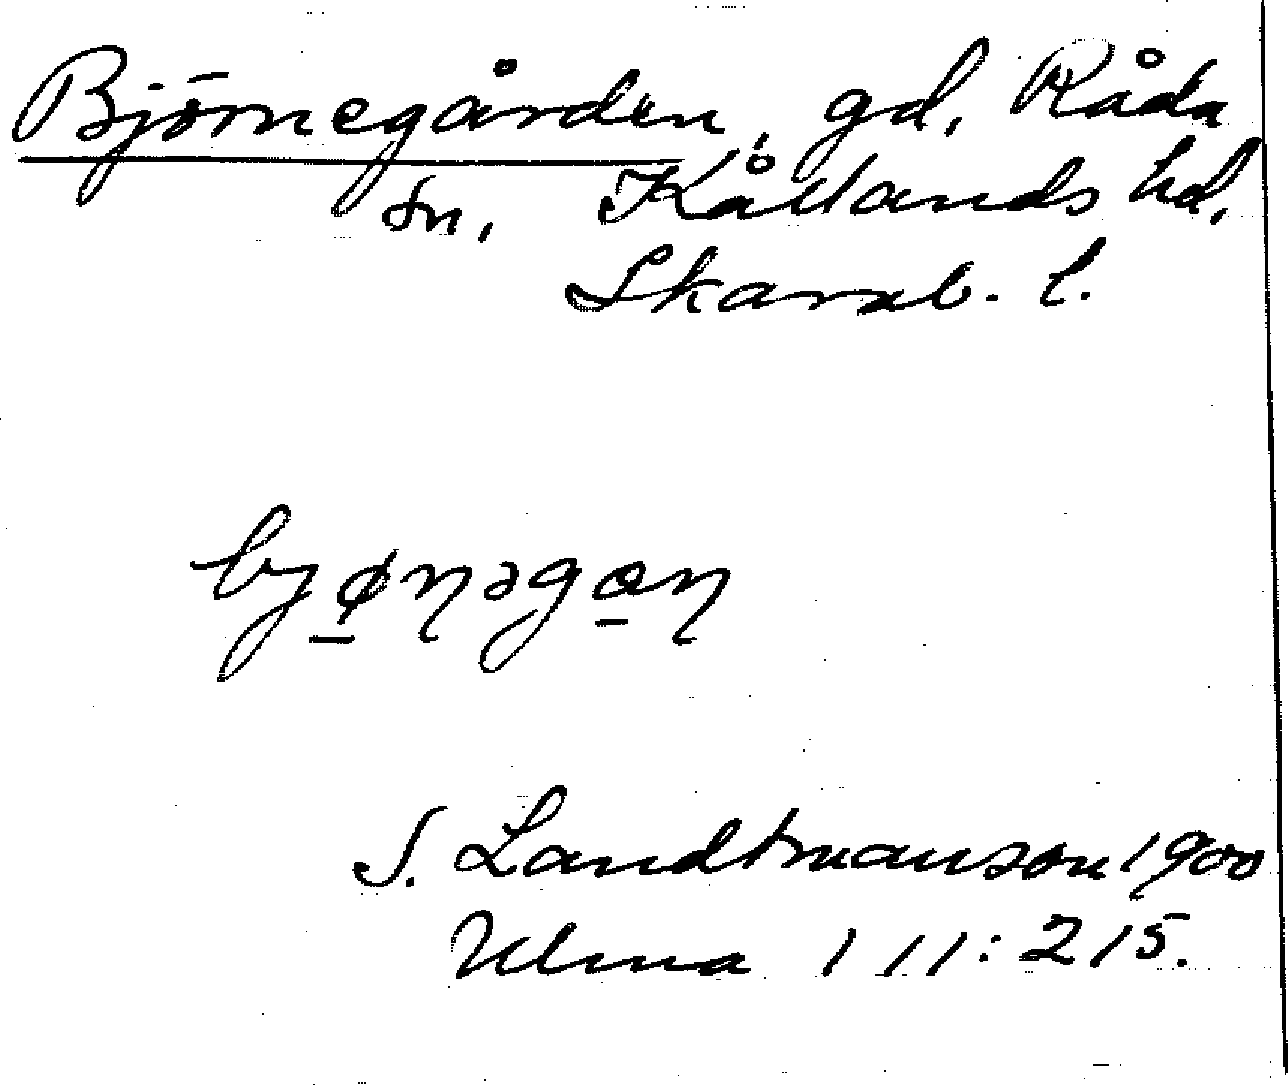 Björnegården, gd, Råda
sn, Kållands hd,
Skarab. l.
S. Landtmanson 1900
Ulma 111:215.